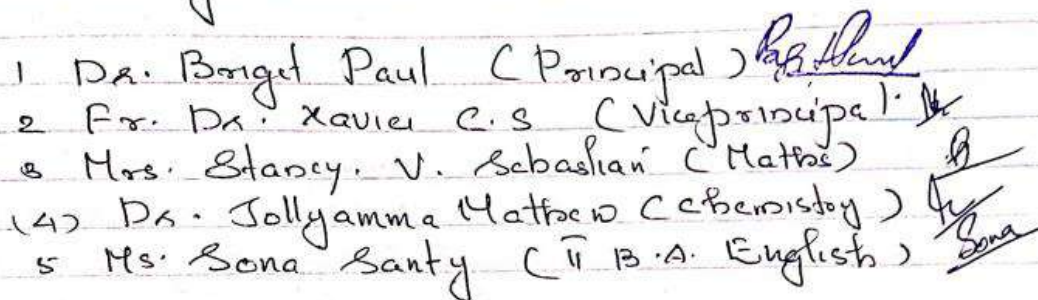 1 Dr. Briget Paul (Principal)
2 Fr. Dr. Xavier C.S (Viceprincipal).
3 Mrs. Stancy. V. Sebastian (Maths)
(4) Dr. Jollyamma Mathew (chemistry)
5 Ms. Sona Santy (II B.A. English) Sona